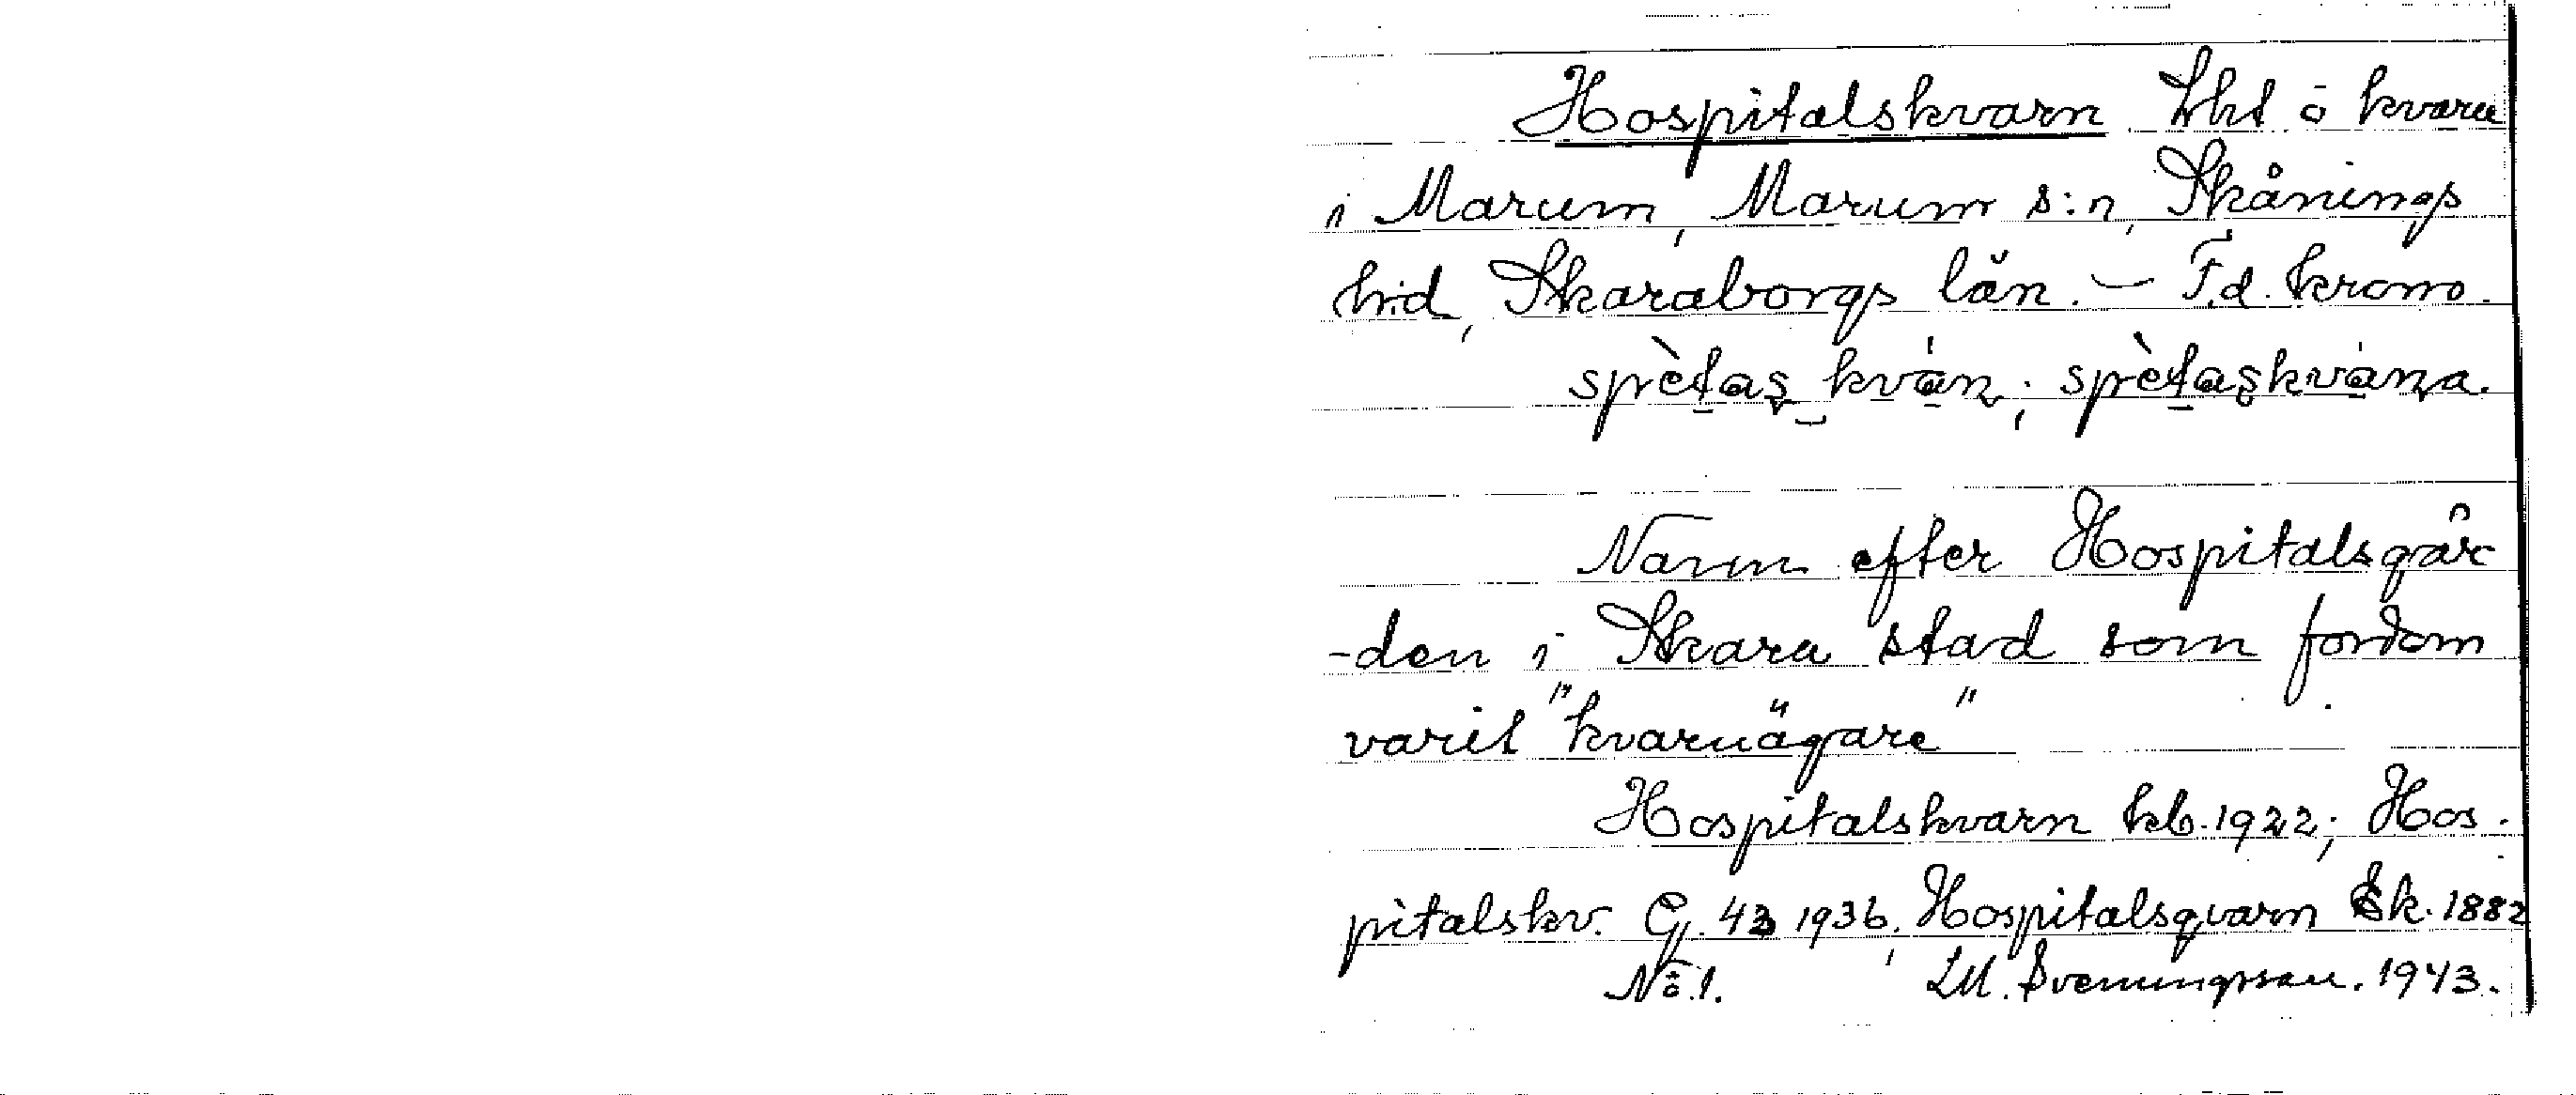 Hospitalskvarn Lht o kvarn
i Marum, Marum s:n, Skånings
hrd, Skaraborgs län. – F.d. krono.
spètaș kván; spètașkvána.
Namn efter Hospitalsgår
-den i Skara stad som fordom
varit "kvarnägare"
Hospitalskvarn kb. 1922; Hos.
pitalskv. Gj. 43 1936, Hospitalsqvarn Ek. 1882
No 1. LM. Svenungsson. 1943.